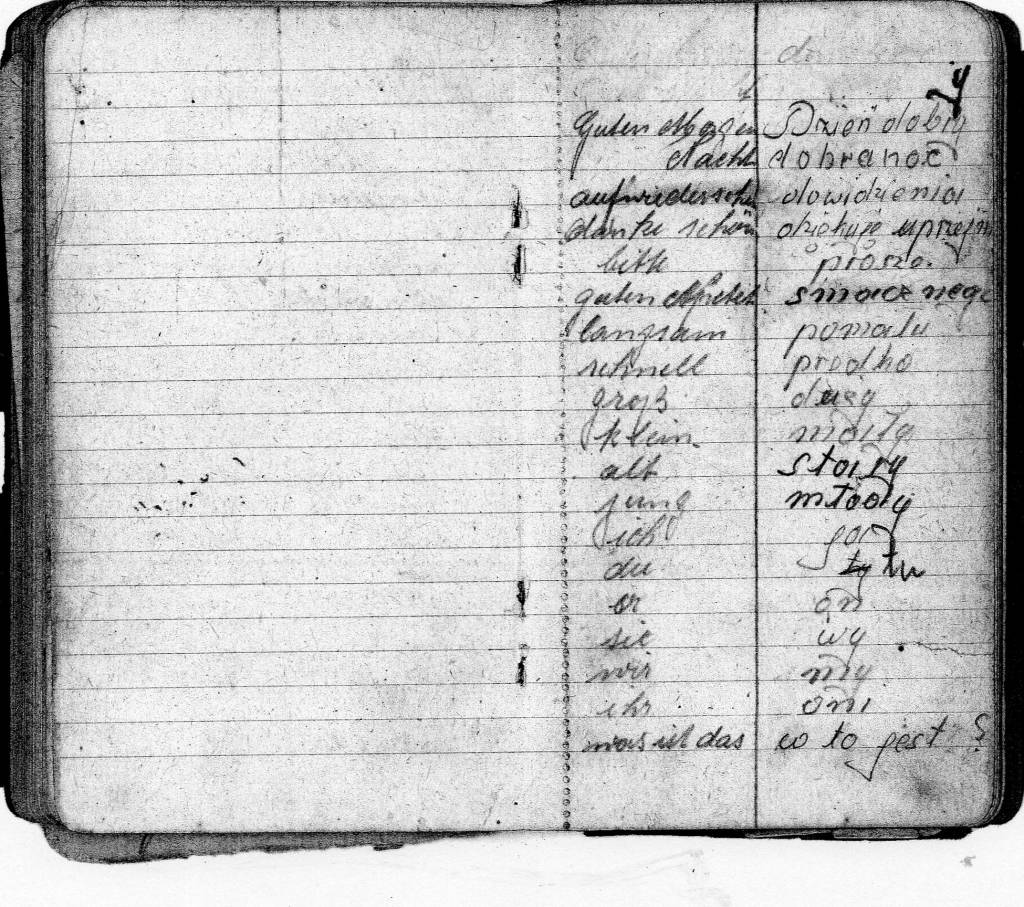 y
Guten Morgen Dzień dobry
Nacht dobranoc
aufwiedersehe dowidzienia
danke schön dziekuje uprzejm
bitte prosze.
guten Apetit smacznego
langsam pomalu
schnell prodko
groß duży
klein mały
alt stary
jung młody
ich ja
du ty tu
er on
sie wy
wir my
ihr oni
was ist das co to jest ?